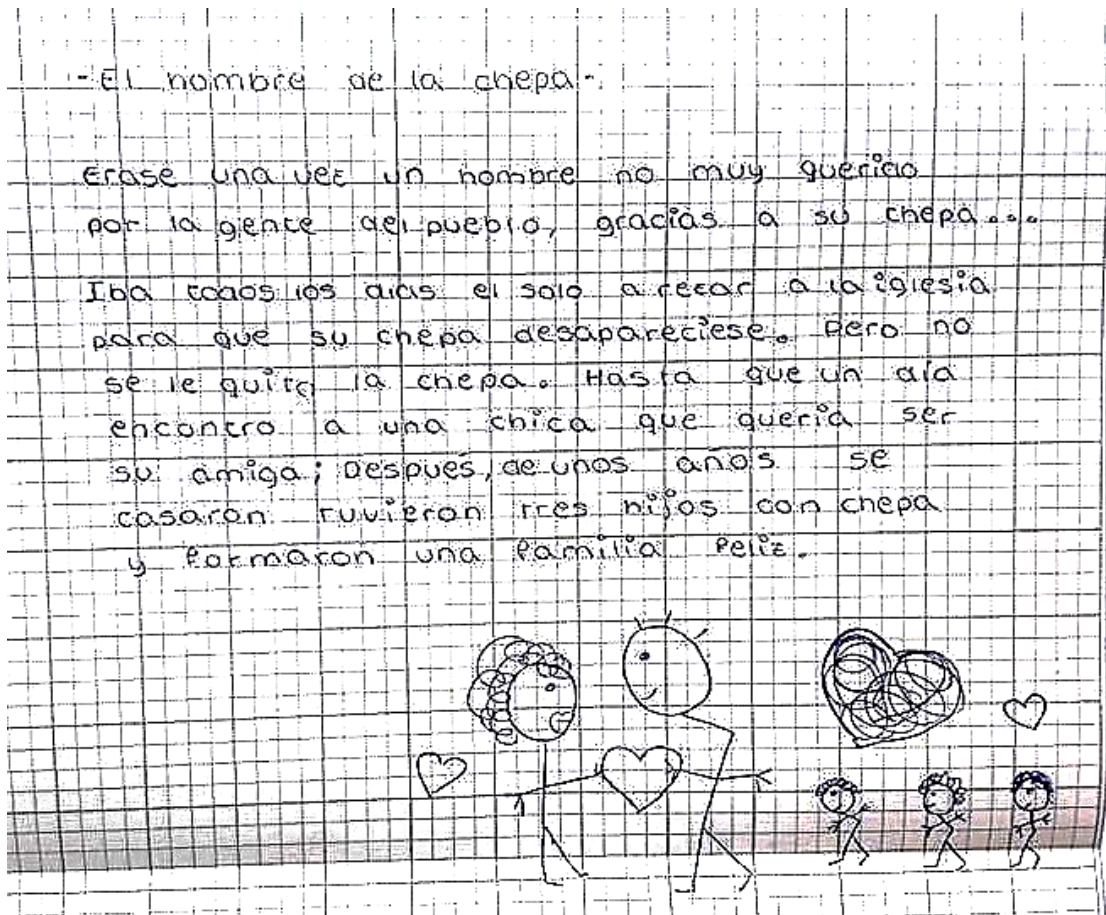 -El hombre de la chepa-
Erase una vez un hombre no muy querido
por la gente del pueblo, gracias a su chepa....
Iba todos los dias el solo a rezar a la iglesia
para que su chepa desapareciese. Pero no
se le quito la chepa. Hasta que un día
encontro a una chica que queria ser
su amiga; Después, de unos años se
casaron tuvieron tres hijos con chepa
y formaron una familia feliz.